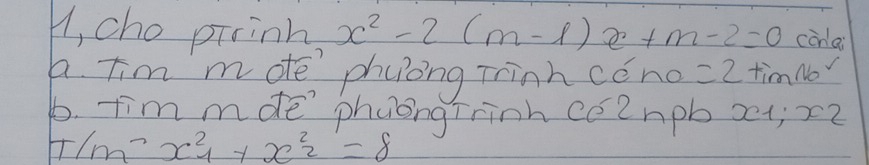 1, cho ptrình x² - 2 (m-1) x + m-2=0
a. Tìm m để phương Trình có no = 2 tìm No
b. Tìm m để phương Trình có 2 npb x1; x2
T/m x₁² + x₂² = 8